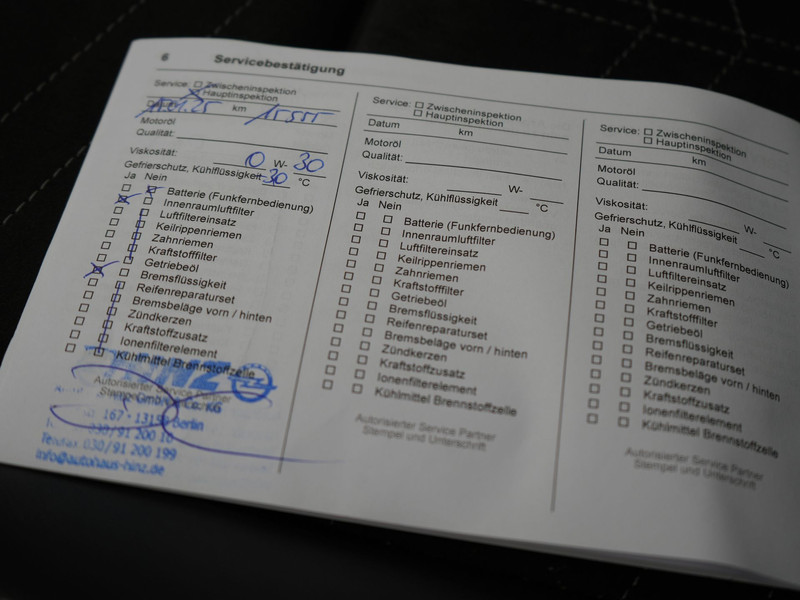 6 Servicebestätigung
Service: Zwischeninspektion
Hauptinspektion
km 15 555
Motoröl
Qualität:
Viskosität: 0 W- 30
Gefrierschutz, Kühlflüssigkeit -30 °C
Ja Nein
Batterie (Funkfernbedienung)
Innenraumluftfilter
Luftfiltereinsatz
Keilrippenriemen
Zahnriemen
Kraftstofffilter
Getriebeöl
Bremsflüssigkeit
Reifenreparaturset
Bremsbeläge vorn / hinten
Zündkerzen
Kraftstoffzusatz
Ionenfilterelement
Kühlmittel Brennstoffzelle
HINZ
Autorisierter Service Partner
Stempel
GmbH & Co. KG
167 - 1313 Berlin
030/91 200 10
030/91 200 199
info@autohaus-hinz.de
Service: Zwischeninspektion
Hauptinspektion
Datum km
Motoröl
Qualität:
Viskosität: W-
Gefrierschutz, Kühlflüssigkeit °C
Ja Nein
Batterie (Funkfernbedienung)
Innenraumluftfilter
Luftfiltereinsatz
Keilrippenriemen
Zahnriemen
Kraftstofffilter
Getriebeöl
Bremsflüssigkeit
Reifenreparaturset
Bremsbeläge vorn / hinten
Zündkerzen
Kraftstoffzusatz
Ionenfilterelement
Kühlmittel Brennstoffzelle
Autorisierter Service Partner
Stempel und Unterschrift
Service: Zwischeninspektion
Hauptinspektion
Datum km
Motoröl
Qualität:
Viskosität: W-
Gefrierschutz, Kühlflüssigkeit °C
Ja Nein
Batterie (Funkfernbedienung)
Innenraumluftfilter
Luftfiltereinsatz
Keilrippenriemen
Zahnriemen
Kraftstofffilter
Getriebeöl
Bremsflüssigkeit
Reifenreparaturset
Bremsbeläge vorn / hinten
Zündkerzen
Kraftstoffzusatz
Ionenfilterelement
Kühlmittel Brennstoffzelle
Autorisierter Service Partner
Stempel und Unterschrift